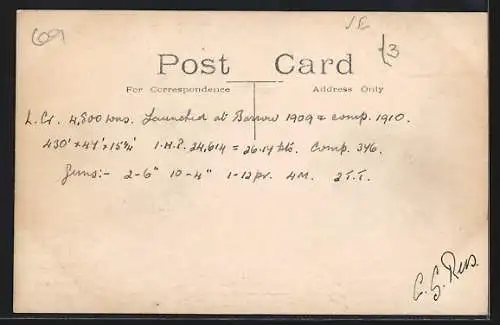 69
JE
£3
Post Card
For Correspondence Address Only
L. Cr. 4,800 tons. Launched at Barrow 1909 & comp. 1910.
430' x 47' x 15¼' I.H.P. 24,614 = 26.14 kts. Comp. 376.
Guns:- 2-6" 10-4" 1-12pr. 4M. 2 T.T.